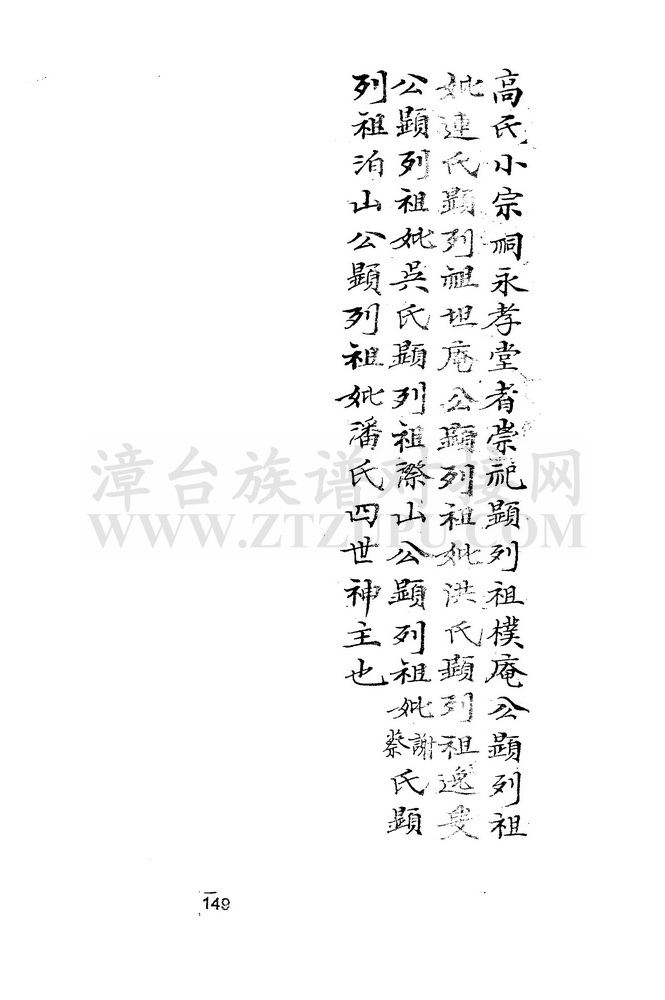 高氏小宗祠永孝堂者崇祀顯列祖樸庵公顯列祖
妣連氏顯列祖坦庵公顯列祖妣洪氏顯列祖逸叟
公顯列祖妣吳氏顯列祖際山公顯列祖妣謝蔡氏顯
列祖泊山公顯列祖妣潘氏四世神主也
漳台族谱对接网
WWW.ZTZUPU.COM
149